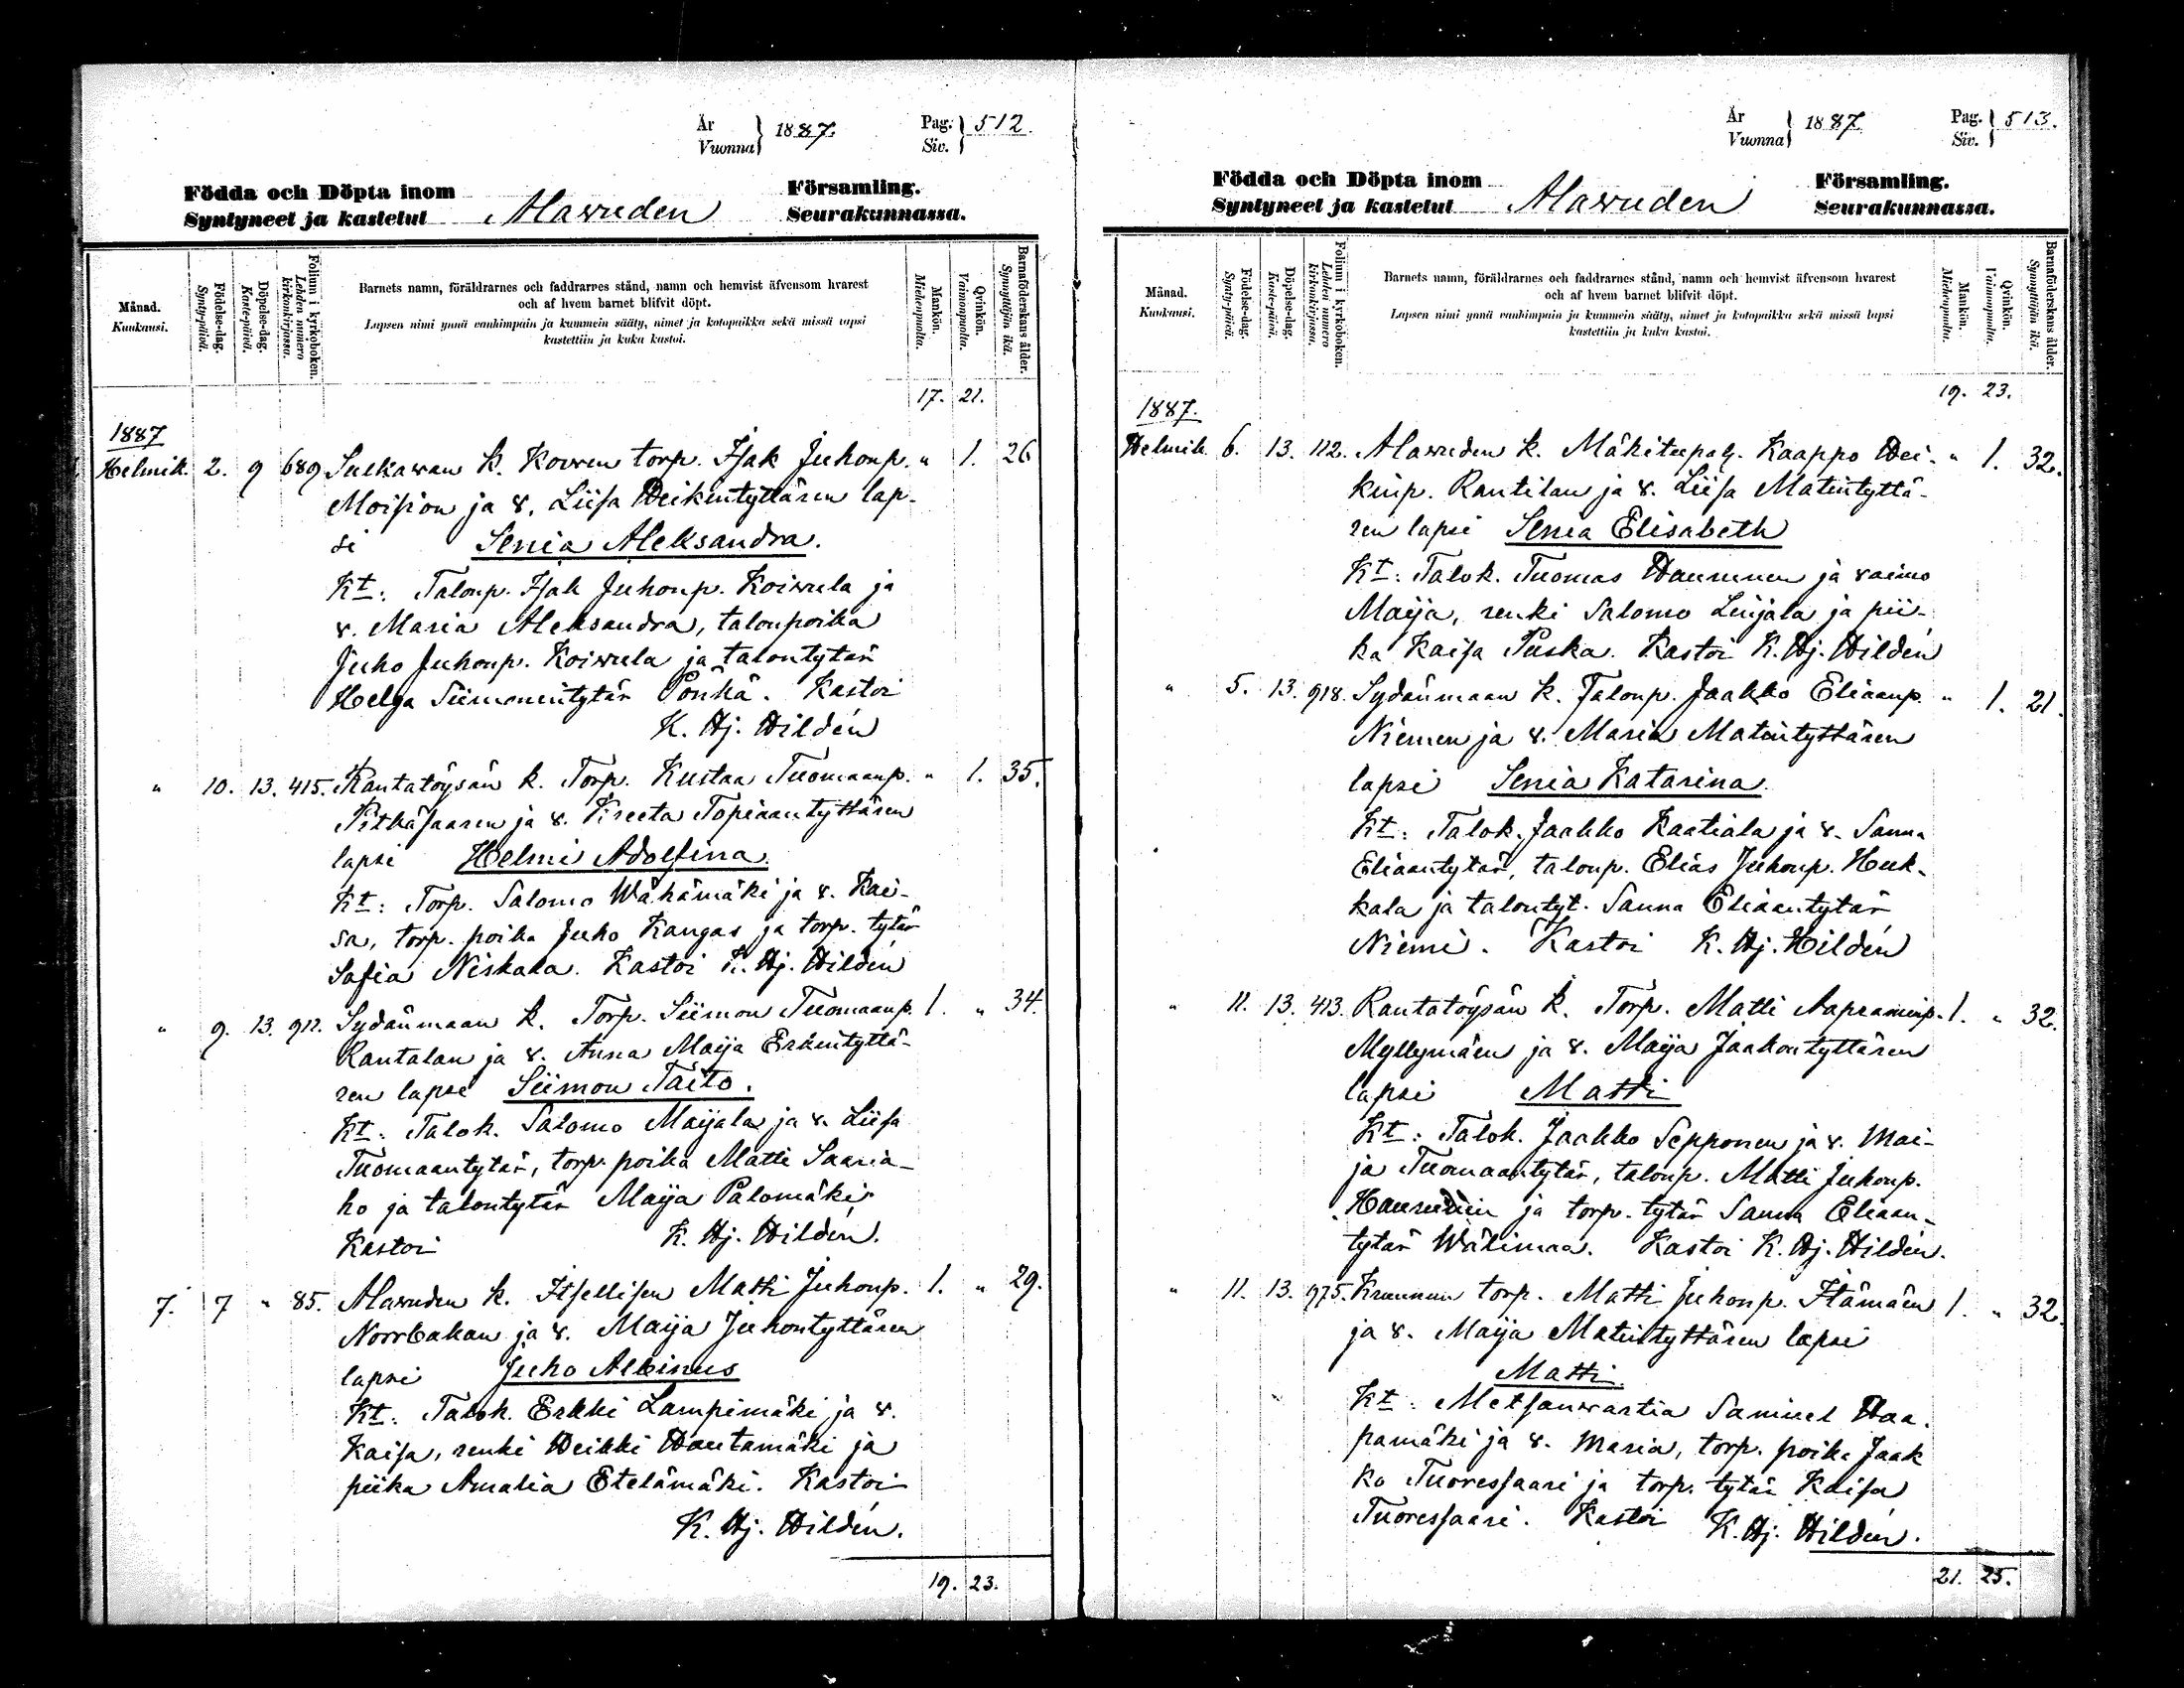 År
Vuonna } 1887.
Pag.
Siv. } 512.
Födda och Döpta inom Församling.
Syntyneet ja kastetut Alawuden Seurakunnassa.
Månad.
Kuukausi.
Födelse-dag.
Synty-päivä.
Döpelse-dag.
Kaste-päivä.
Folium i kyrkoboken.
Lehden numero kirkonkirjassa.
Barnets namn, föräldrarnes och faddrarnes stånd, namn och hemvist äfvensom hvarest
och af hvem barnet blifvit döpt.
Lapsen nimi ynnä vanhimpain ja kummein sääty, nimet ja kotopaikka sekä missä lapsi
kastettiin ja kuka kastoi.
Mankön.
Miehenpuolia.
Qvinkön.
Vaimonpuolia.
Barnaföderskans ålder.
Synnyttäjän ikä.
17. 21.
1887
Helmik. 2. 9 689 Sulkawan k. Korven torp. Isak Juhonp. " 1. 26
Moision ja v. Liisa Heikintyttären lap-
si Senia Aleksandra.
Kt: Talonp. Isak Juhonp. Koiwula ja
v. Maria Aleksandra, talonpoika
Juho Juhonp. Koiwula ja talontytär
Helga Siimonintytär Pönkä. Kastoi
K. Hj. Hildén
" 10. 13. 415. Rantatöysän k. Torp. Kustaa Tuomaanp. " 1. 35.
Pitkäsaaren ja v. Kreeta Topiaantyttären
lapsi Helmi Adolfina.
Kt: Torp. Salomo Wähämäki ja v. Kai-
sa, torp. poika Juho Kangas ja torp. tytär
Safia Niskala. Kastoi K. Hj. Hildén
" 9. 13. 912. Sydänmaan k. Torp. Siimon Tuomaanp. 1. " 34.
Rantalan ja v. Anna Maija Erkintyttä-
ren lapsi Siimon Taito.
Kt: Talok. Salomo Maijala ja v. Liisa
Tuomaantytär, torp. poika Matti Saaria-
ho ja talontytär Maija Palomäki.
Kastoi K. Hj. Hildén.
7. 7 " 85. Alawuden k. Itsellisen Matti Juhonp. 1. " 29.
Norrbakan ja v. Maija Juhontyttären
lapsi Juho Albinus
Kt: Talok. Erkki Lampimäki ja v.
Kaisa, renki Heikki Hautamäki ja
piika Amalia Etelämäki. Kastoi
K. Hj. Hildén.
19. 23.
År
Vuonna } 1887.
Pag.
Siv. } 513.
Födda och Döpta inom Församling.
Syntyneet ja kastetut Alawuden Seurakunnassa.
Månad.
Kuukausi.
Födelse-dag.
Synty-päivä.
Döpelse-dag.
Kaste-päivä.
Folium i kyrkoboken.
Lehden numero kirkonkirjassa.
Barnets namn, föräldrarnes och faddrarnes stånd, namn och hemvist äfvensom hvarest
och af hvem barnet blifvit döpt.
Lapsen nimi ynnä vanhimpain ja kummein sääty, nimet ja kotopaikka sekä missä lapsi
kastettiin ja kuka kastoi.
Mankön.
Miehenpuolia.
Qvinkön.
Vaimonpuolia.
Barnaföderskans ålder.
Synnyttäjän ikä.
19. 23.
1887.
Helmik. 6. 13. 112. Alawuden k. Mäkitupal. Kaappo Hei- " 1. 32.
kinp. Rantilan ja v. Liisa Matintyttä-
ren lapsi Senia Elisabeth
Kt: Talok. Tuomas Haununen ja vaimo
Maija, renki Salomo Linjala ja pii-
ka Kaisa Puska. Kastoi K. Hj. Hildén
" 5. 13. 918. Sydänmaan k. Talonp. Jaakko Eliaanp. " 1. 21.
Niemen ja v. Maria Matintyttären
lapsi Senia Katarina.
Kt: Talok. Jaakko Kaatiala ja v. Sanna
Eliaantytär, talonp. Elias Juhonp. Huk-
kala ja talontyt. Sanna Eliaantytär
Niemi. Kastoi K. Hj. Hildén
" 11. 13. 413. Rantatöysän k. Torp. Matti Aapraminp. 1. " 32.
Myllymäen ja v. Maija Jaakontyttären
lapsi Matti
Kt: Talok. Jaakko Sepponen ja v. Mai-
ja Tuomaantytär, talonp. Matti Juhonp.
ja torp. tytär Sanna Eliaan-
tytär Wälimaa. Kastoi K. Hj. Hildén.
" 11. 13. 975. Kruunun torp. Matti Juhonp. Itämäen 1. " 32.
ja v. Maija Matintyttären lapsi
Matti.
Kt: Metsänwartia Samuel Haa-
pamäki ja v. Maria, torp. poika Jaak
ko Tuoressaari ja torp. tytär Kaisa
Tuoressaari. Kastoi K. Hj. Hildén.
21. 25.